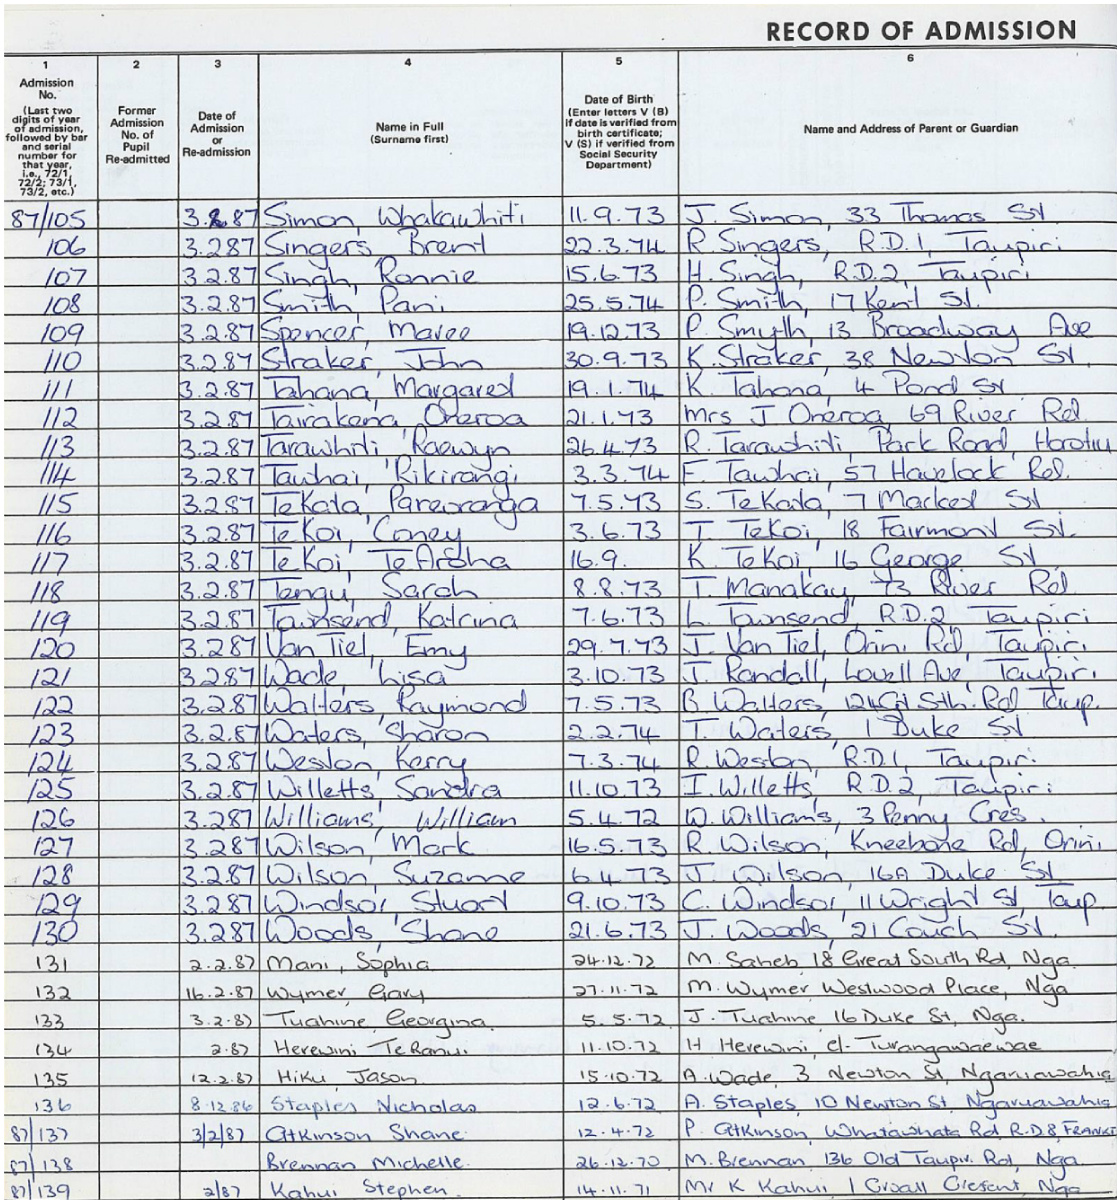 RECORD OF ADMISSION
1 2 3 4 5 6
Admission No. (Last two digits of year of admission, followed by bar and serial number for that year, i.e., 72/1, 72/2; 73/1, 73/2, etc.) Former Admission No. of Pupil Re-admitted Date of Admission or Re-admission Name in Full (Surname first) Date of Birth (Enter letters V (B) if date is verified from birth certificate; V (S) if verified from Social Security Department) Name and Address of Parent or Guardian
87/105 3.2.87 Simon, Whakawhiti 11.9.73 J. Simon, 33 Thomas St
106 3.2.87 Singers, Brent 22.3.74 R. Singers, R.D.1, Taupiri
107 3.2.87 Singh, Ronnie 15.6.73 H. Singh, R.D.2, Taupiri
108 3.2.87 Smith, Pani 25.5.74 P. Smith, 17 Kent St.
109 3.2.87 Spencer, Maree 19.12.73 P. Smyth, 13 Broadway Ave
110 3.2.87 Straker, John 30.9.73 K. Straker, 38 Newton St
111 3.2.87 Tahana, Margaret 19.1.74 K. Tahana, 4 Pond St
112 3.2.87 Tairakena, Oneroa 21.1.73 Mrs J Oneroa, 69 River Rd
113 3.2.87 Tarawhiti, Raewyn 26.4.73 R. Tarawhiti, Park Road, Horotiu
114 3.2.87 Tawhai, Rikirangi 3.3.74 F. Tawhai, 57 Havelock Rd.
115 3.2.87 TeKata, Pareoranga 7.5.73 S. TeKata, 7 Market St
116 3.2.87 TeKoi, Coney 3.6.73 T. TeKoi, 18 Fairmont St.
117 3.2.87 TeKoi, TeAroha 16.9. K. TeKoi, 16 George St
118 3.2.87 Tengu, Sarah 8.8.73 T. Manakay, 73 River Rd
119 3.2.87 Townsend, Katrina 7.6.73 L. Townsend, R.D.2 Taupiri
120 3.2.87 Van Tiel, Emy 29.7.73 J. Van Tiel, Orini Rd, Taupiri
121 3.2.87 Wade, Lisa 3.10.73 J. Randall, Lovell Ave, Taupiri
122 3.2.87 Walters, Raymond 7.5.73 B. Walters, 124 Gt Sth. Rd Taup.
123 3.2.87 Waters, Sharon 2.2.74 T. Waters, 1 Duke St
124 3.2.87 Weston, Kerry 7.3.74 R. Weston, R.D.1, Taupiri
125 3.2.87 Willetts, Sandra 11.10.73 I. Willetts, R.D.2, Taupiri
126 3.2.87 Williams, William 5.4.72 W. Williams, 3 Penny Cres.
127 3.2.87 Wilson, Mark 16.5.73 R. Wilson, Kneebone Rd, Orini
128 3.2.87 Wilson, Suzanne 6.4.73 J. Wilson, 16A Duke St.
129 3.2.87 Windsor, Stuart 9.10.73 C. Windsor, 11 Wright St, Taup
130 3.2.87 Woods, Shane 21.6.73 J. Woods, 21 Couch St.
131 2.2.87 Mani, Sophia 24.12.72 M. Saheb, 18 Great South Rd, Nga
132 16.2.87 Wymer, Gary 27.11.72 M. Wymer Westwood Place, Nga
133 3.2.87 Tuahine, Georgina 5.5.72 J. Tuahine 16 Duke St, Nga.
134 2.87 Herewini TeRanui 11.10.72 H Herewini, cl- Turangawaewae
135 12.2.87 Hiku, Jason. 15.10.72 A. Wade, 3 Newton St, Ngaruawahia
136 8.12.86 Staples Nicholas 12.6.72 A. Staples, 10 Newton St. Ngaruawahia
87/137 3/2/87 Atkinson Shane 12.4.72 P. Atkinson, Whatawhata Rd R.D 8, FRANKT
87/138 Brennan Michelle. 26.12.70 M. Brennan, 136 Old Taupiri Rd, Nga.
87/139 2/87 Kahui Stephen. 14.11.71 Mr K Kahui 1 Croall Cresent, Nga